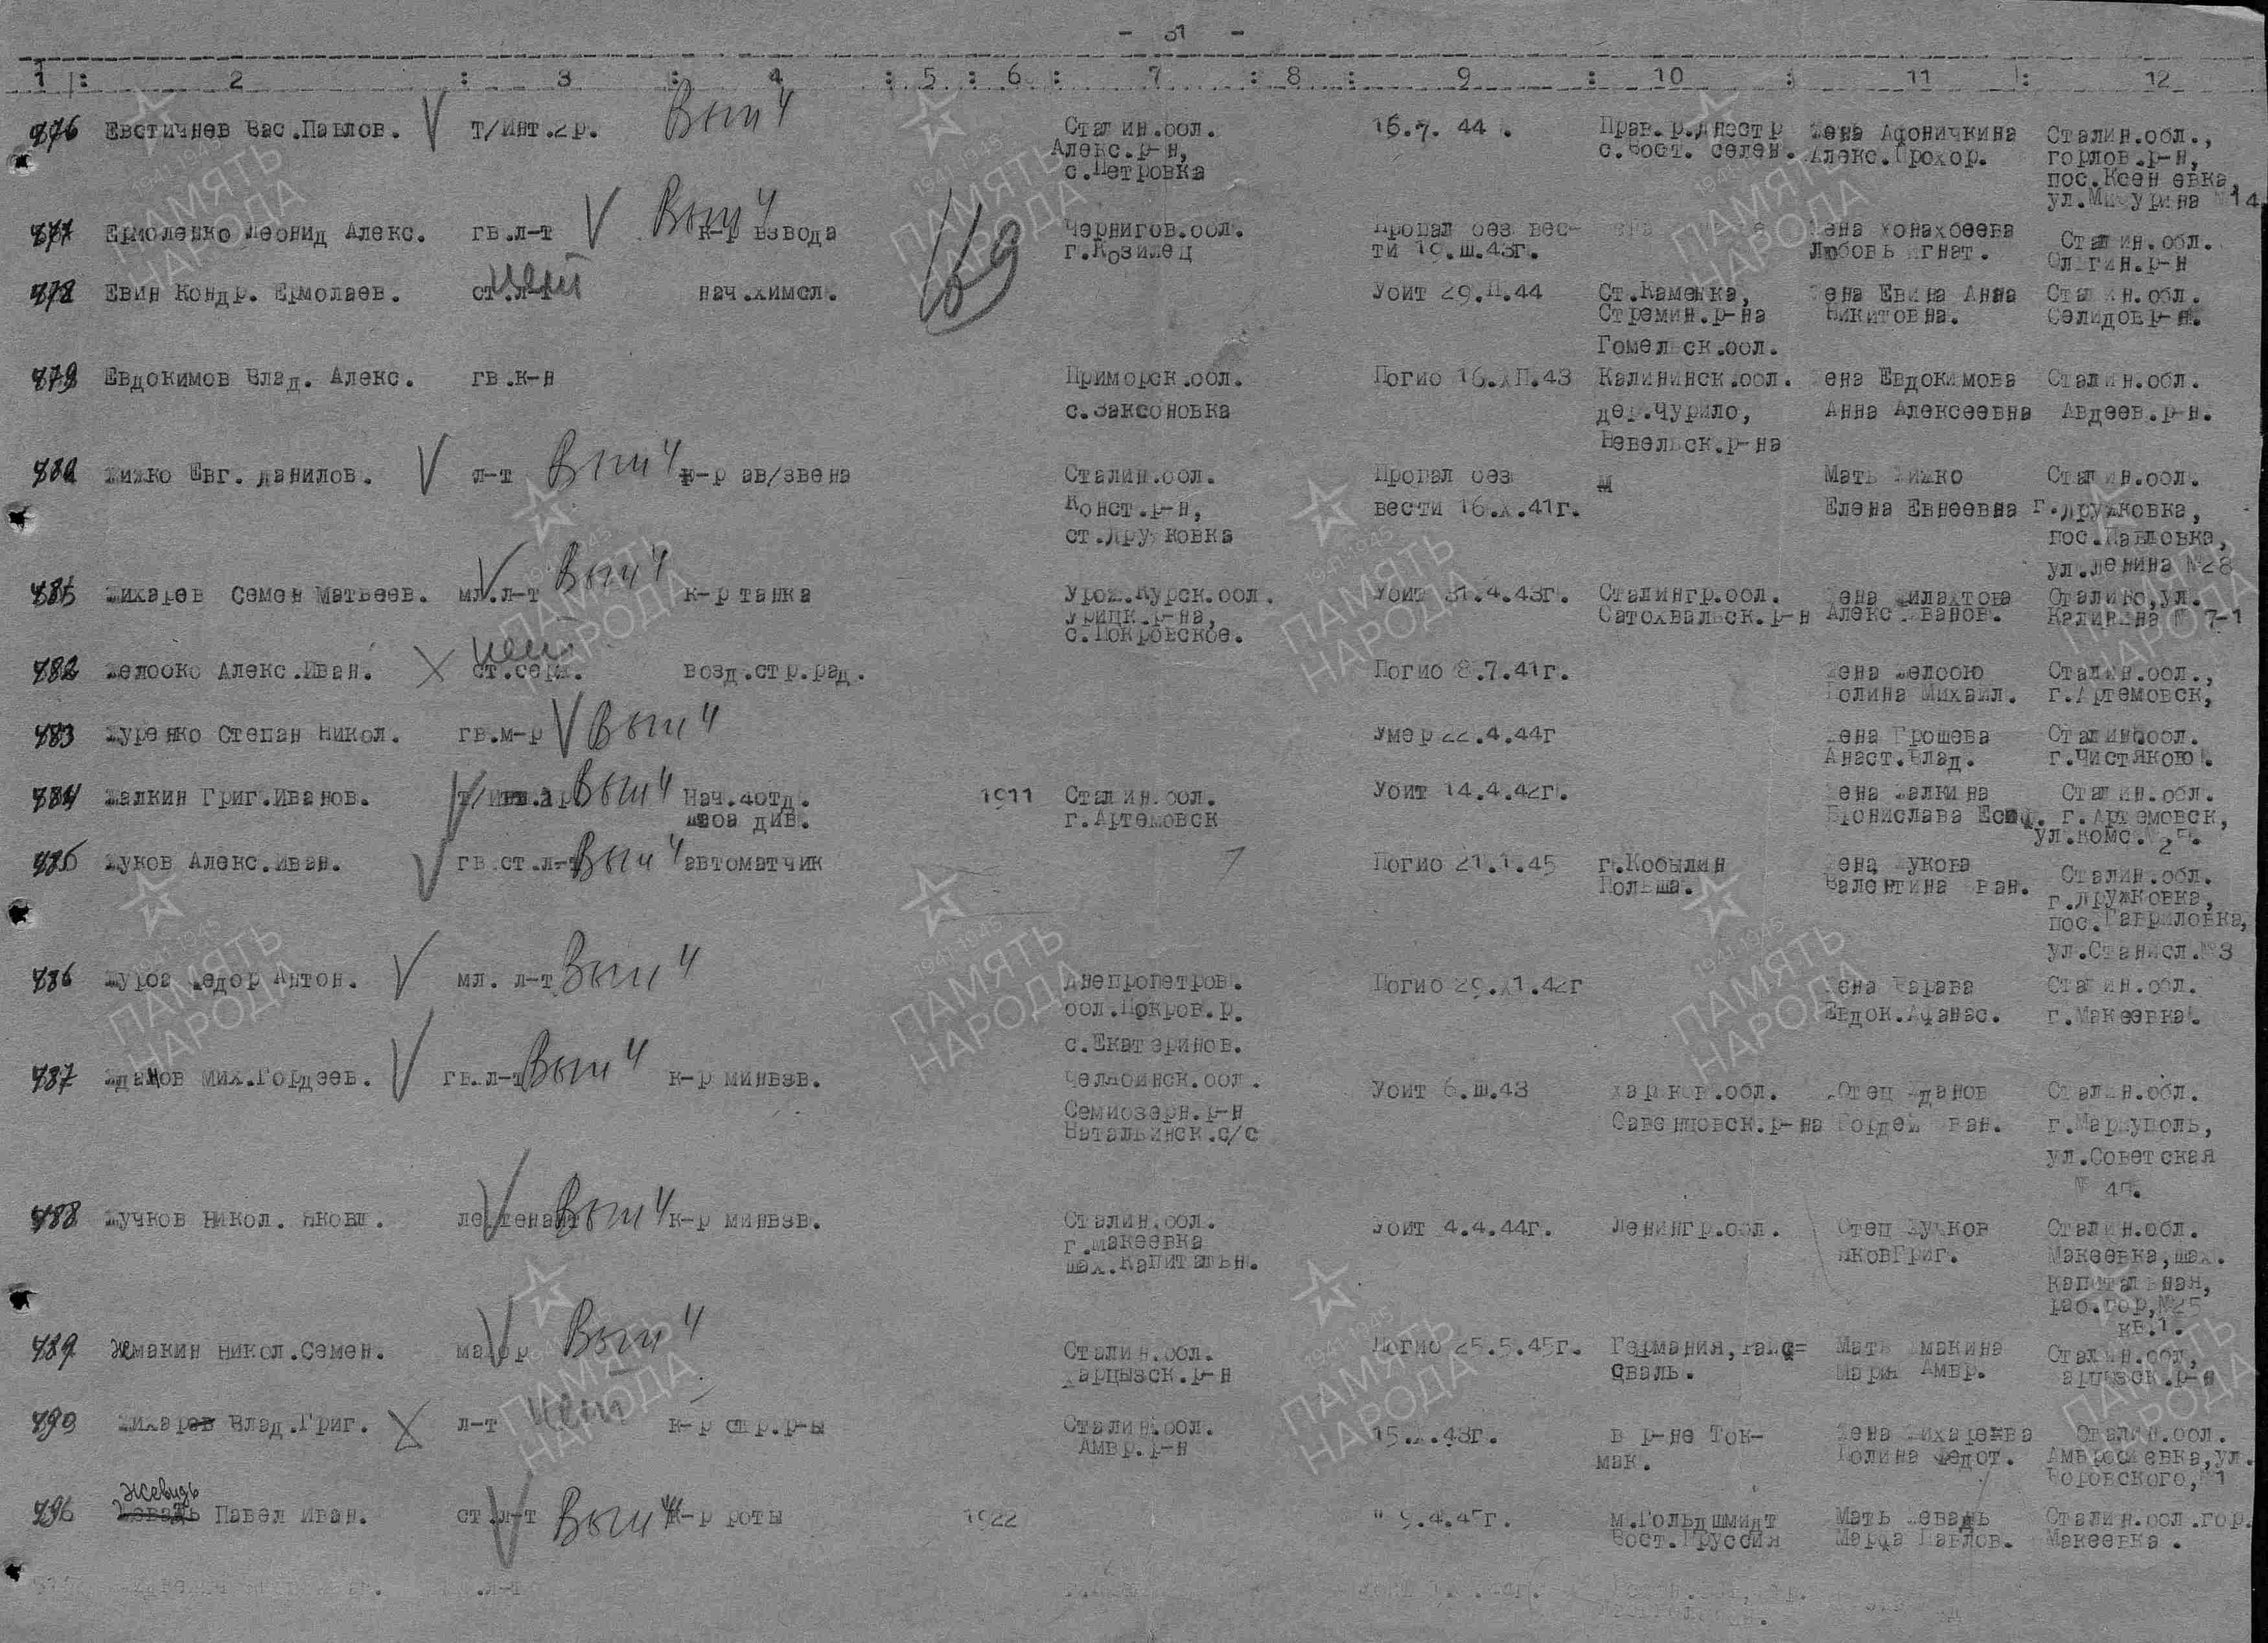 - 31 -
1 : 2 : 3 : 4 : 5 : 6 : 7 : 8 : 9 : 10 : 11 : 12
876 Евстичнев Вас.Павлов. V т/инт.2р. Вып ч Сталин.обл. 16.7. 44 . Прав.р.Днестр Жена Афоничкина Сталин.обл.,
Алекс.р-н, с.Вост. селен. Алекс.Прохор. горлов.р-н,
с.Петровка пос.Ксен евка,
ул.Мичурина №14
877 Ермоленко Леонид Алекс. гв.л-т V Вып ч к-р взвода Чернигов.обл. Пропал без вес- Жена Любовь Игнат. Сталин.обл.
г.Козилец ти 19.Ш.43г. Ольгин.р-н
69
878 Евин Кондр. Ермолаев. ст.л-т нет нач.химсл. Убит 29.П.44 Ст.Каменка, Жена Евина Анна Сталин.обл.
Стремин.р-на Никитовна. Селидов р-н.
Гомельск.обл.
879 Евдокимов Влад. Алекс. гв.к-н Приморск.обл. Погиб 16.ХП.43 Калининск.обл. Жена Евдокимова Сталин.обл.
с.Заксоновка дер.Чурило, Анна Алексеевна Авдеев.р-н.
Невельск.р-на
880 Жижко Евг. Данилов. V л-т Вып ч к-р ав/звена Сталин.обл. Пропал без Мать Жижко Сталин.обл.
Конст.р-н, вести 16.Х.41г. Елена Евнеевна г.Дружковка,
ст.Дружковка пос.Павловка,
ул.Ленина №28
881 Жихарев Семен Матвеев. мл.л-т V Вып ч к-р танка Урож.Курск.обл. Убит 31.4.43г. Сталингр.обл. Жена Сталино,ул.
Урицк.р-на, Сатохвальск.р-н Алекс.Иванов. Калинина № 7-1
с.Покровское.
882 Желобко Алекс.Иван. X ст.серж. нет возд.стр.рад. Погиб 8.7.41г. Жена Желобою Сталин.обл.,
Полина Михаил. г.Артемовск,
883 Журенко Степан Никол. гв.м-р V Вып ч Умер 22.4.44г Жена Грошева Сталин.обл.
Анаст.Влад. г.Чистяково.
884 Жалкин Григ.Иванов. V Вып ч Нач.4отд. 1911 Сталин.обл. Убит 14.4.42г. Жена Жалкина Сталин.обл.
штаба див. г.Артемовск Бронислава Есиф. г.Артемовск,
ул.Комс.
885 Жуков Алекс.Иван. V гв.ст.л-т Вып ч автоматчик Погиб 21.1.45 г.Кобылин Жена Жукова Сталин.обл.
Польша. Валентина Иван. г.Дружковка,
пос.Гавриловка,
ул.Станисл.№3
886 Журоа Федор Антон. V мл. л-т Вып ч Днепропетров. Погиб 29.Х1.42г Жена Сталин.обл.
обл.Покров.р. Евдок.Афанас. г.Макеевка.
с.Екатеринов.
887 Жданов Мих.Гордеев. V гв.л-т Вып ч к-р минвзв. Челябинск.обл. Убит 6.Ш.43 Харьков.обл. Отец Жданов Сталин.обл.
Семиозерн.р-н Савенцовск.р-на Гордей Иван. г.Мариуполь,
Натальинск.с/с ул.Советская
№ 47.
888 Жучков Никол. Яковл. лейтенант V Вып ч к-р минвзв. Сталин.обл. Убит 4.4.44г. Ленингр.обл. Отец Жучков Сталин.обл.
г.Макеевка ЯковГриг. Макеевка,шах.
шах.Капитальн. Капитальная,
раб.гор,№25
кв.1.
889 Жмакин Никол.Семен. майор V Вып ч Сталин.обл. Погиб 25.5.45г. Германия, Мать Жмакина Сталин.обл,
Харцызск.р-н сваль. Мария Амвр. Харцызск.р-н
890 Жихарев Влад.Григ. X л-т нет к-р стр.р-ы Сталин.обл. 15.Х.43г. в р-не Ток- Жена Жихарева Сталин.обл.
Амвр.р-н мак. Полина Федот. Амвросиевка,ул.
Воровского,№1
Жевидь
Павел Иван. ст.л-т V Вып ч к-р роты 1922 " 9.4.45г. м.Гольдшмидт Мать Жевадь Сталин.обл.гор.
Вост.Пруссия Марфа Павлов. Макеевка.
ПАМЯТЬ НАРОДА
1941-1945